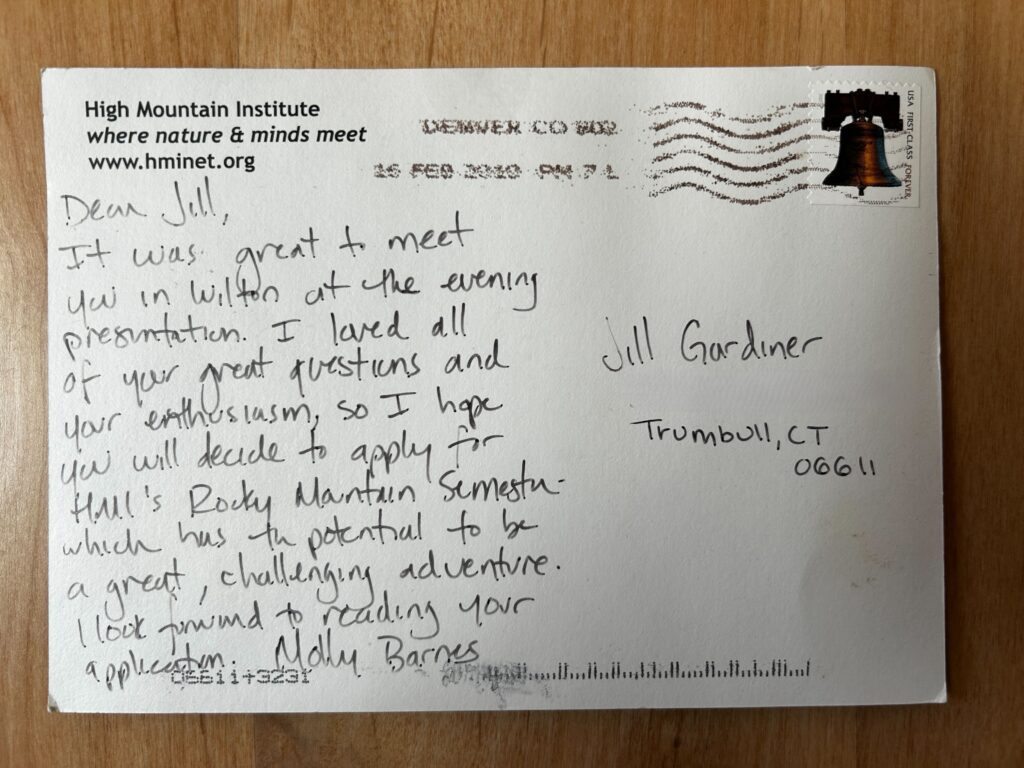 High Mountain Institute
where nature & minds meet
www.hminet.org
DENVER CO 802
16 FEB 2010 PM 7 L
USA FIRST-CLASS FOREVER
Dear Jill,
It was great to meet
you in Wilton at the evening
presentation. I loved all
of your great questions and
your enthusiasm, so I hope
you will decide to apply for
HMI's Rocky Mountain Semester-
which has the potential to be
a great, challenging adventure.
I look forward to reading your
application. Molly Barnes
Jill Gardiner
Trumbull, CT
06611
06611+3231